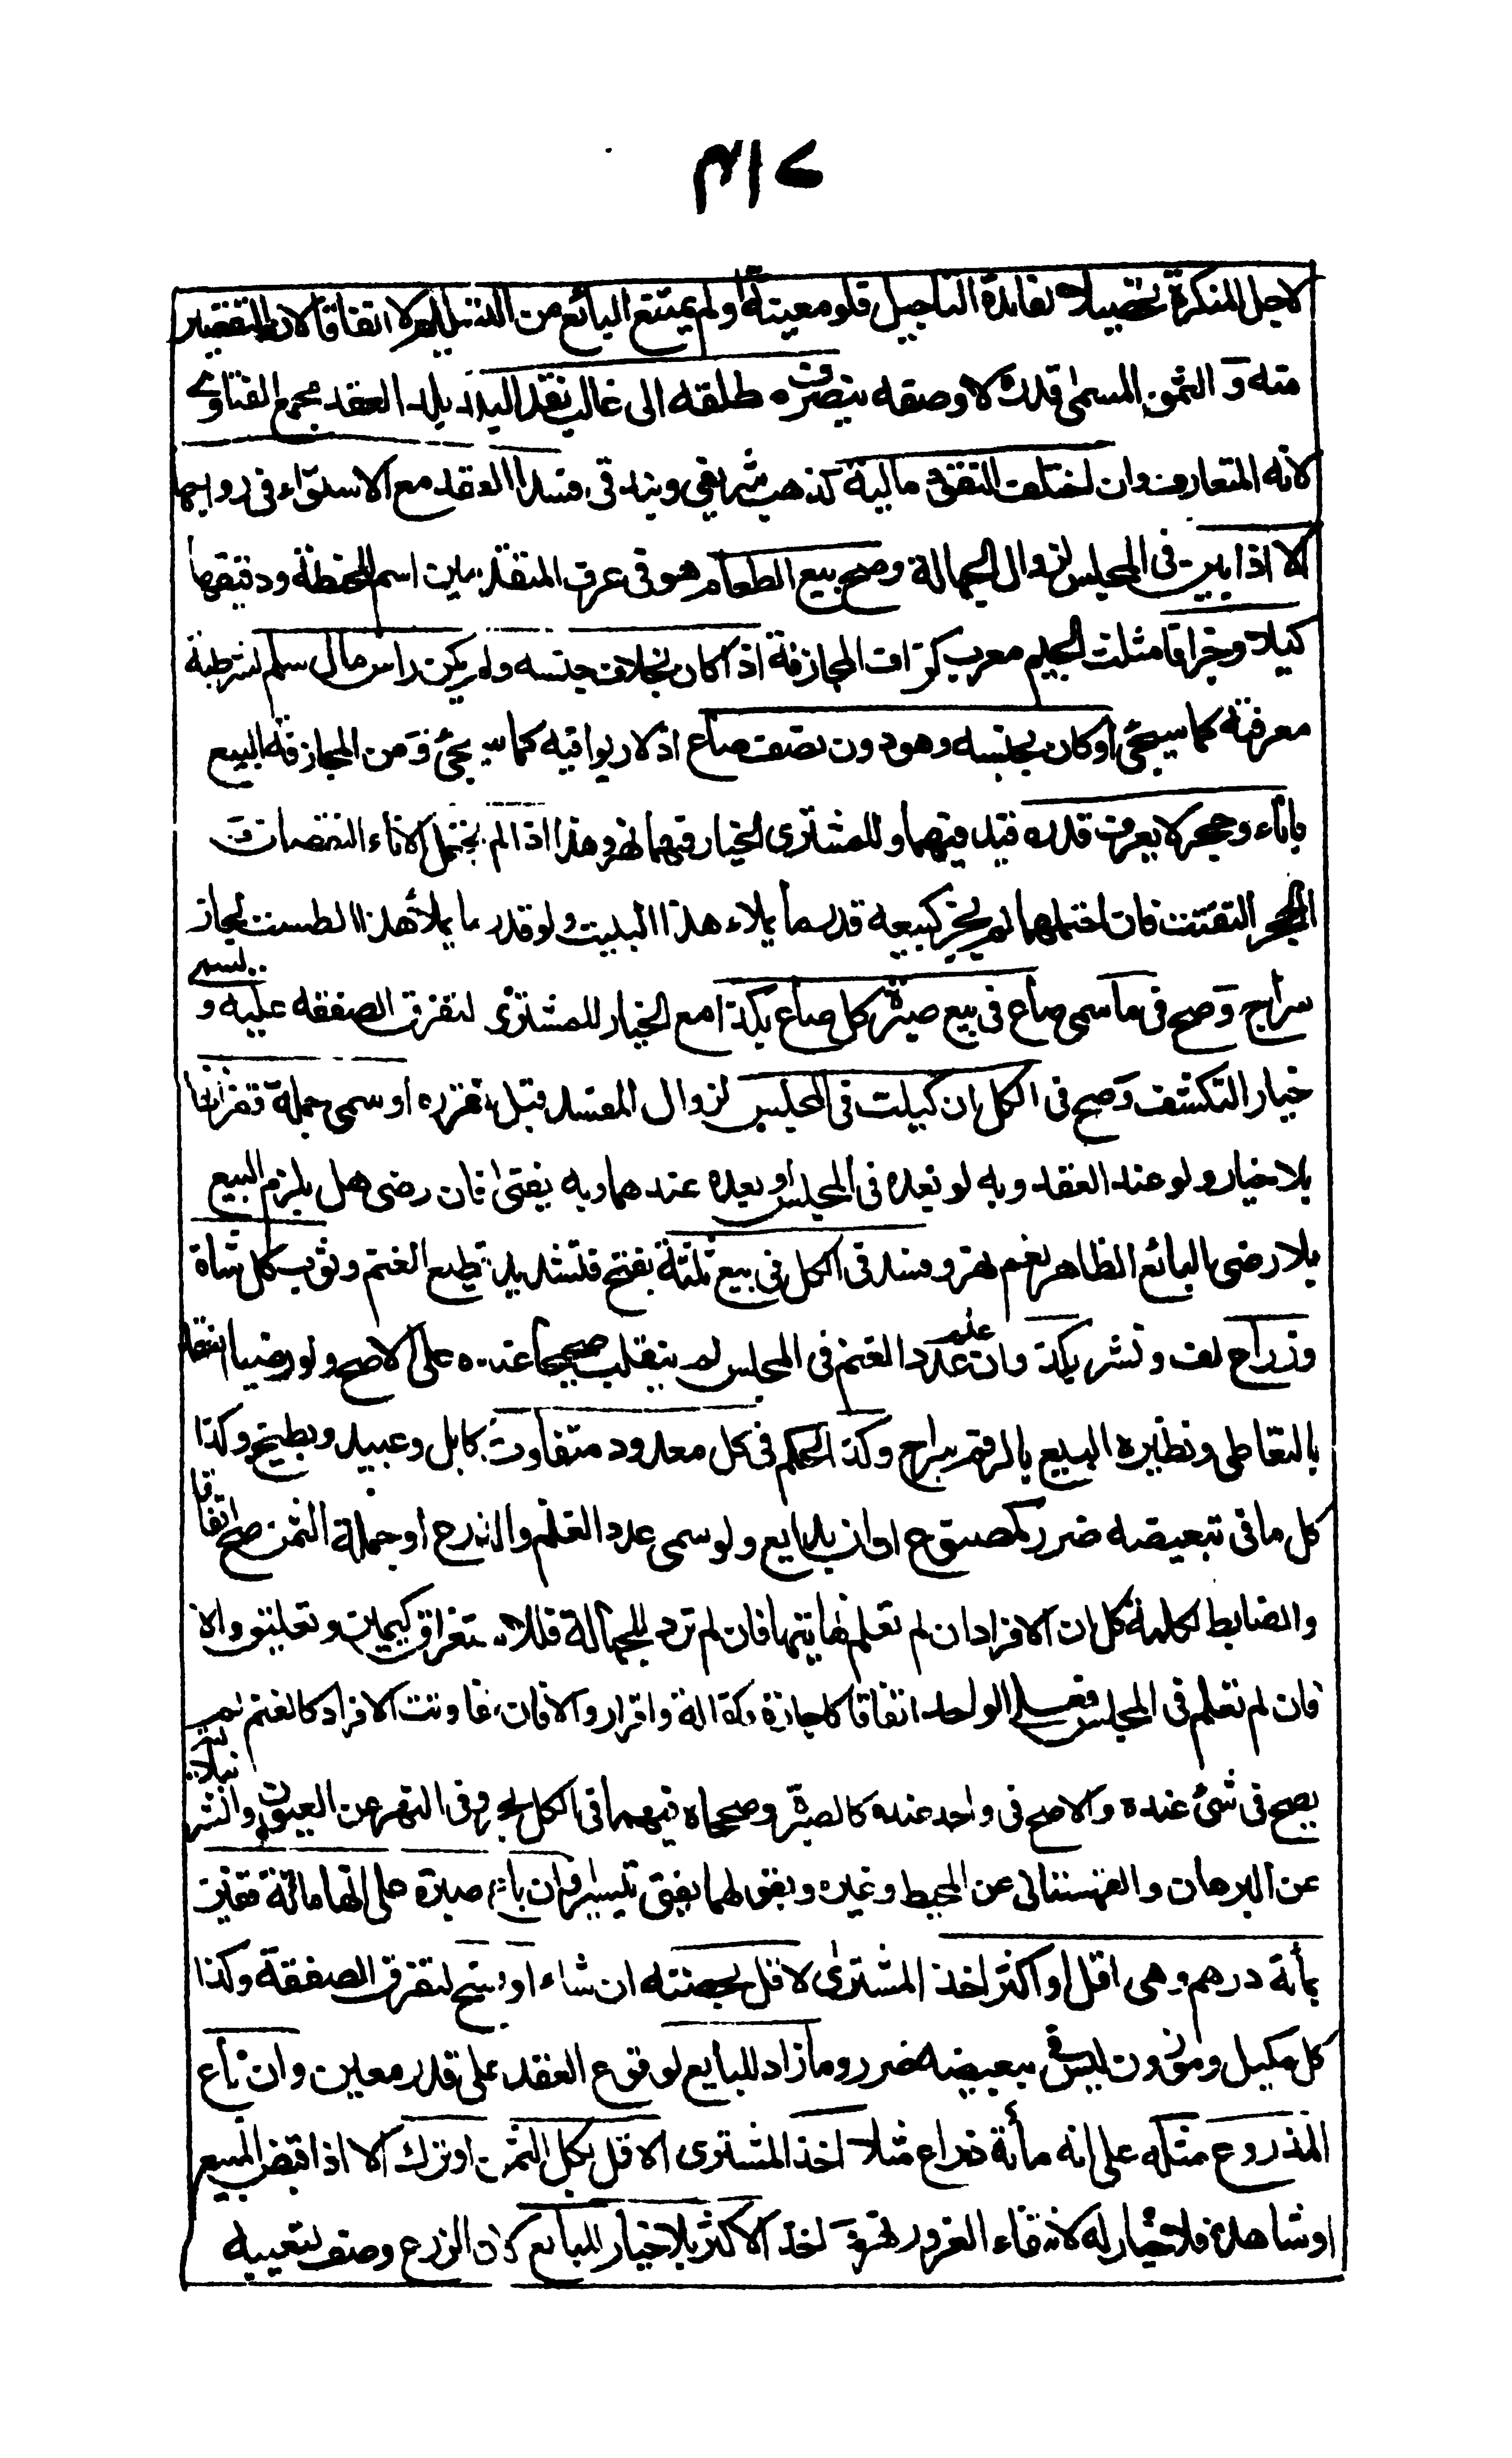 ٣١٧
لاجل المنكرة تحصيلا لفائدة التاجيل فلو معينة او لم يمتنع البائع من التسليم لا اتفاقا لان التقصير
منه و الثمن المسمى قدره لا وصفه ينصرف مطلقه الى غالب نقد البلد بلد العقد مجمع الفتاوى
لانه المتعارف وان اختلفت النقود مالية كذهب شريفي وبندقي فسد العقد مع الاستواء في رواجها
الا اذا بين في المجلس لزوال الجهالة وصح بيع الطعام هو في عرف المتقدمين اسم للحنطة ودقيقها
كيلا وجزافا مثلث الجيم معرب كزاف المجازفة اذا كان بخلاف جنسه ولم يكن راس مال سلم لشرطية
معرفته كما سيجئ او كان بجنسه وهو دون نصف صاع اذ لا ربوا فيه كما سيجئ ومن المجازفة البيع
باناء وحجر لا يعرف قدره قيد فيهما وللمشترى الخيار فيهما نهر وهذا اذا لم يحتمل الاناء النقصان و
الحجر التفتت فان احتملهما لم يجز كبيعه قدر ما يملاء هذا البيت ولو قدر ما يملأ هذا الطست لجاز
سراج وصح في ما سمى صاع في بيع صبرة كل صاع بكذا مع الخيار للمشترى لتفرق الصفقه عليه و يسمى
خيار التكشف وصح في الكل ان كيلت في المجلس لزوال المفسد قبل تقرره او سمى جملة قفزانها
بلا خيار ولو عند العقد وبه لو بعده في المجلس او بعده عندهما وبه يفتى فان رضى هل يلزم البيع
بلا رضى البائع الظاهر نعم نهر وفسد في الكل في بيع ثلة بفتح فتشديد قطيع الغنم وثوب كل شاة
وذراع لف ونشر بكذا وان علم عدد الغنم في المجلس لم ينقلب صحيحا عنده على الاصح ولو رضيا انعقد
بالتعاطى ونظيره البيع بالرقم سراج وكذا الحكم في كل معدود متفاوت كابل وعبيد وبطيخ وكذا
كل ما في تبعيضه ضرر كمصوغ اوان بدايع ولو سمى عدد الغنم والذرع او جملة الثمن صح اتفاقا
والضابط لكلمة كل ان الافراد ان لم تعلم نهايتها فان لم تؤد للجهالة فللاستغراق كيمين وتعليق والا
فان لم تعلم في المجلس فعلى الواحد اتفاقا كاجازة وكفالة واقرار والا فان تفاوتت الافراد كالغنم لم
يصح في شئ عنده والاصح في واحد عنده كالصبرة وصححاه فيهما في الكل بحر وفى النهر عن العيون والشرنبلالية
عن البرهان والقهستانى عن المحيط وغيره وبقولهما يفتى تيسيرا وان باع صبرة على انها مائة قفيز
بمأة درهم وهى اقل او اكثر اخذ المشترى لاقل بحصته ان شاء او فسخ لتفرق الصفقة وكذا
كل مكيل وموزون ليس في تبعيضه ضرر وما زاد للبايع لوقوع العقد على قدر معين وان باع
المذروع مثله على انه مأة ذراع مثلا اخذ المشترى الاقل بكل الثمن او ترك الا اذا قبض المبيع
او شاهده فلا خيار له لانتفاء الغرور نهر و اخذ الاكثر بلا خيار للبايع لان الذرع وصف لتعيبه